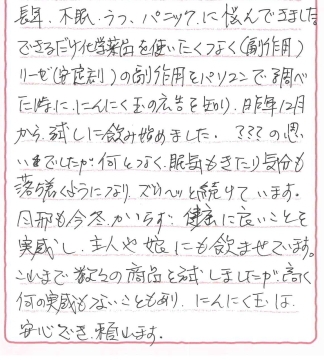 長年、不眠、うつ、パニック、に悩んできました
できるだけ化学薬品を使いたくなく(副作用)
リーゼ(安定剤)の副作用をパソコンで調べ
た時に、にんにく玉の広告を知り、昨年12月
から、試しに飲み始めました。???の思
いでしたが、何となく、眠気もきたり気分も
落ち着くようになり、ズーッと続けています。
風邪も今冬、かからず、健康に良いことを
実感し、主人や娘にも飲ませています。
これまで数々の商品を試しましたが、高く
何の実感もないこともあり、にんにく玉は
安心でき、頼ります。